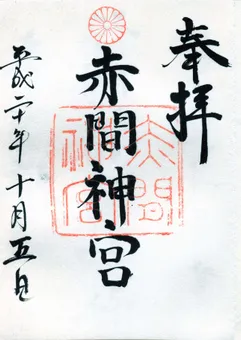 奉拝
赤間神宮
平成二十年十月五日
赤間
神宮